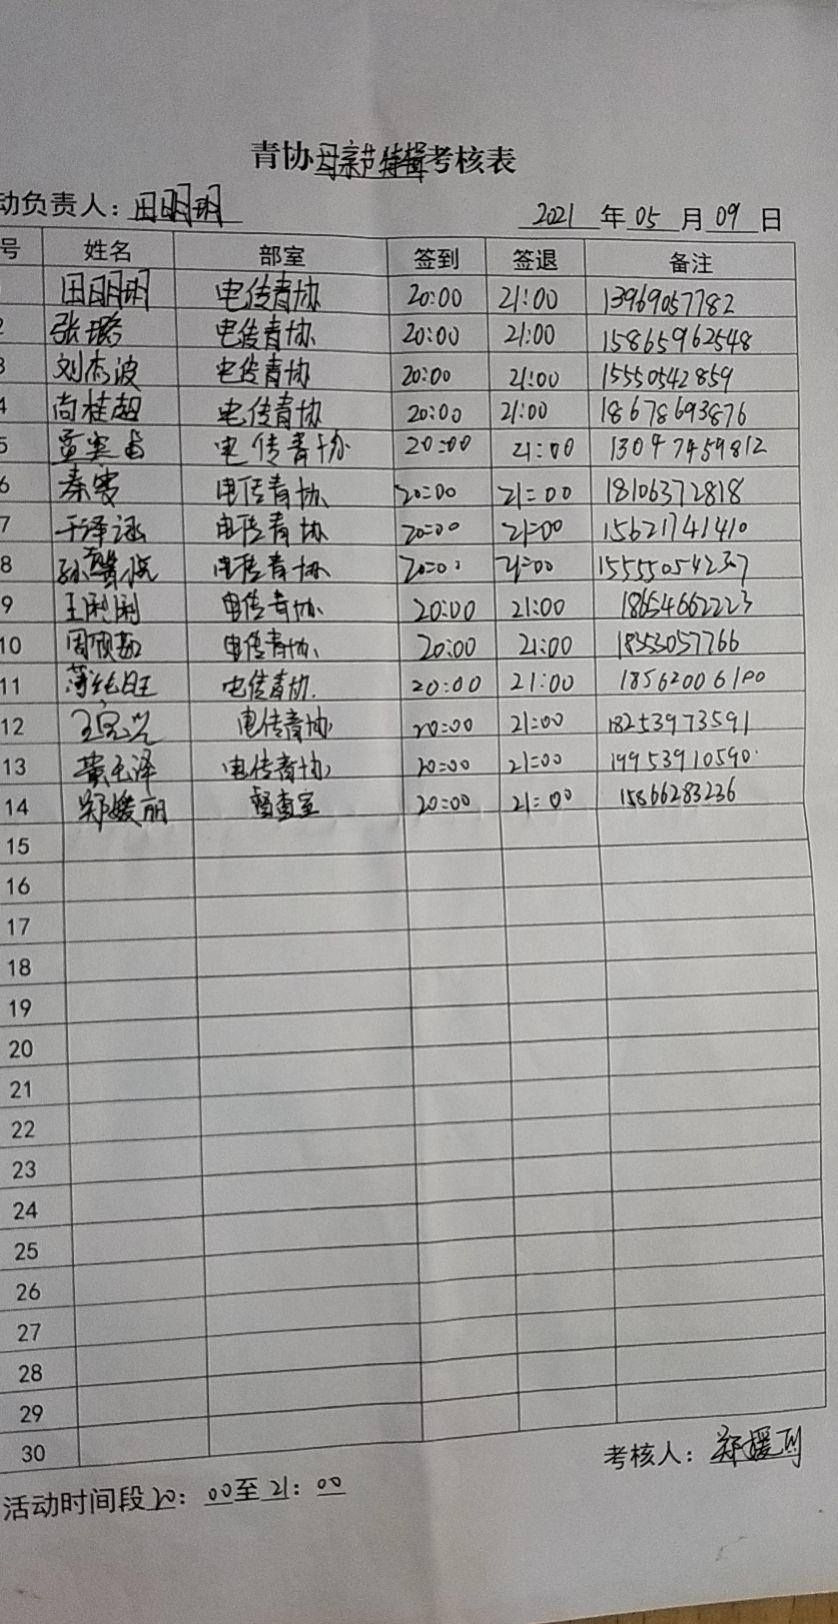 青协母亲节特辑考核表
动负责人：田明玥
2021 年 05 月 09 日
号 姓名 部室 签到 签退 备注
田明玥 电传青协 20:00 21:00 13969057782
2 张璐 电传青协 20:00 21:00 15865962548
3 刘杰波 电传青协 20:00 21:00 15550542859
4 尚桂超 电传青协 20:00 21:00 18678693876
5 电传青协 20:00 21:00 13047459812
6 秦雯 电传青协 20:00 21:00 18106372818
7 于泽涵 电传青协 20:00 21:00 15621741410
8 电传青协 21:00
9 王俐俐 电传青协 20:00 21:00 18654662223
10 电传青协 20:00 21:00 18553057766
11 薄纯旺 电传青协 20:00 21:00 18562006100
12 电传青协 20:00 21:00 18253973591
13 黄玉泽 电传青协 20:00 21:00 19953910590
14 郑媛丽 督查室 20:00 21:00 15866283236
15
16
17
18
19
20
21
22
23
24
25
26
27
28
29
30
考核人：郑媛丽
活动时间段20：00至21：00